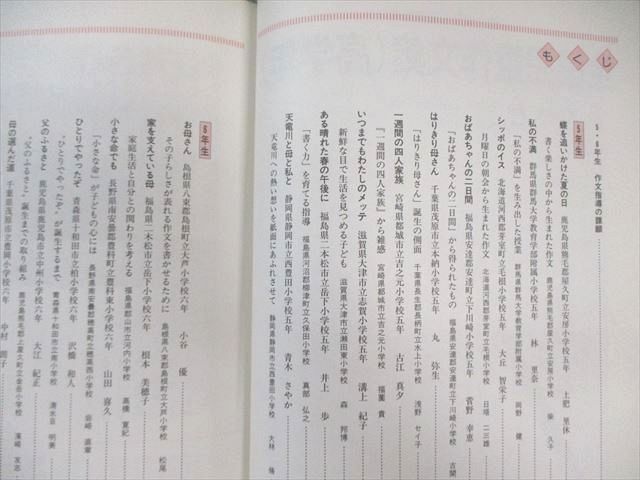 もくじ
5・6年生 作文指導の課題
5年生
蝶を追いかけた夏の日 鹿児島県熊毛郡屋久町立安房小学校五年 上肥 里休
書く楽しさの中から生まれた作文 鹿児島県熊毛郡屋久町立安房小学校 柴 久子
私の不満 群馬県群馬大学教育学部附属小学校五年 林 里奈
「私の不満」を生み出した授業 群馬県群馬大学教育学部附属小学校 岡野 健
シッポのイス 北海道河西郡芽室町立毛根小学校五年 大丘 智栄子
月曜日の朝会から生まれた作文 北海道河西郡芽室町立毛根小学校 日塔 二三雄
おばあちゃんの二日間 福島県安達郡安達町立下川崎小学校五年 菅野 幸恵
「おばあちゃんの二日間」から得られたもの 福島県安達郡安達町立下川崎小学校 古関
はりきり母さん 千葉県茂原市立本納小学校五年 丸 弥生
「はりきり母さん」誕生の側面 千葉県長生郡長柄町立水上小学校 浅野 セイ子
一週間の四人家族 宮崎県都城市立吉之元小学校五年 古江 真夕
『一週間の四人家族』から雑感 宮崎県都城市立吉之元小学校 福薗 貴
いつまでもわたしのメッテ 滋賀県大津市立志賀小学校五年 溝上 紀子
新鮮な目で生活を見つめる子ども 滋賀県大津市立瀬田東小学校 森 邦博
ある晴れた春の午後に 福島県二本松市立岳下小学校五年 井上 歩
「書く力」を育てる指導 福島県河沼郡柳津町立久保田小学校 真部 弘之
天竜川と母と私と 静岡県静岡市立西豊田小学校五年 青木 さやか
天竜川への熱い想いを紙面にあふれさせて 静岡県静岡市立西豊田小学校 大林
6年生
お母さん 島根県八束郡島根町立大芦小学校六年 小谷 優
その子らしさが表れる作文を書かせるために 島根県八束郡島根町立大芦小学校 松尾
家を支えている母 福島県二本松市立岳下小学校六年 根本 美穂子
家庭生活と自分との関わりを考える 福島県郡山市立河内小学校 高橋 寛紀
小さな命でも 長野県南安曇郡豊科町立豊科東小学校六年 山田 喜久
「小さな命」が子どもの心には 長野県南安曇郡穂高町立穂高西小学校 岩崎 直輩
ひとりでやったぞ 青森県十和田市立相小学校六年 沢橋 和人
"ひとりでやったぞ"が誕生するまで 青森県十和田市立南小学校 清水目 明美
父のふるさと 鹿児島県鹿児島市立中州小学校六年 大江 紀正
"父のふるさと"誕生までの取り組み 鹿児島県熊毛郡上屋久町立金岳小学校 濱崎 友志
母の選んだ道 千葉県茂原市立豊岡小学校六年 中村 潤子